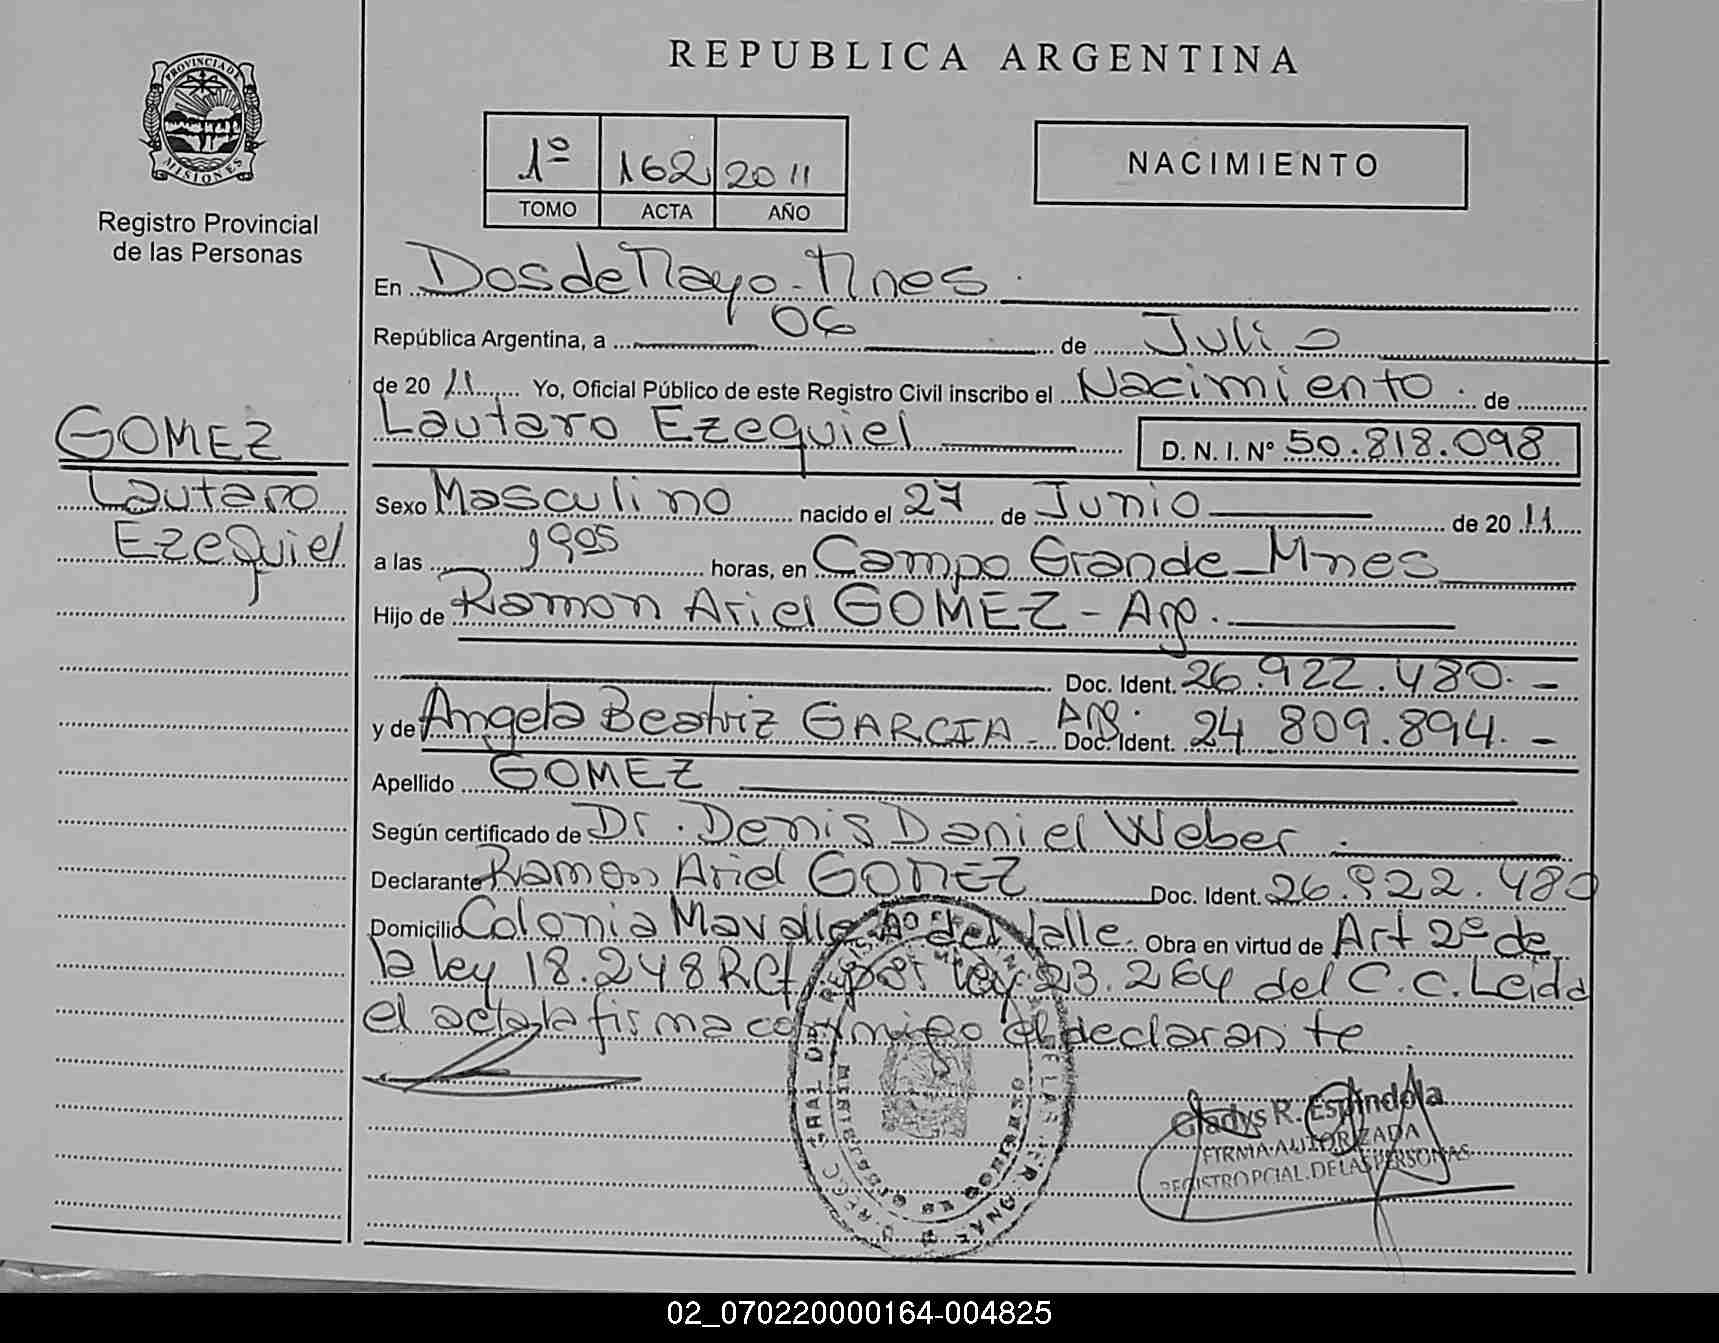 REPUBLICA ARGENTINA
PROVINCIA DE
MISIONES
Registro Provincial
de las Personas
1º 162 2011
TOMO ACTA AÑO
NACIMIENTO
En Dos de Mayo - Mnes
República Argentina, a 06 de Julio
de 20 11 Yo, Oficial Público de este Registro Civil inscribo el Nacimiento de
Lautaro Ezequiel D. N. I. Nº 50.818.098
GOMEZ
Lautaro
Ezequiel
Sexo Masculino nacido el 27 de Junio de 20 11
a las 1905 horas, en Campo Grande - Mnes
Hijo de Ramon Ariel GOMEZ - Arg.
Doc. Ident. 26.922.480. -
y de Angela Beatriz GARCIA - Arg. Doc. Ident. 24 809.894. -
Apellido GOMEZ
Según certificado de Dr. Denis Daniel Weber.
Declarante Ramon Ariel GOMEZ Doc. Ident. 26.922.480
Domicilio Colonia Mavalle Aº del Valle. Obra en virtud de Art 2º de
la ley 18.248 Ref. por ley 23.264 del C.C. Leida
el acta la firma conmigo el declarante
Gladys R. Espindola
FIRMA AUTORIZADA
REGISTRO PCIAL. DE LAS PERSONAS
02_070220000164-004825